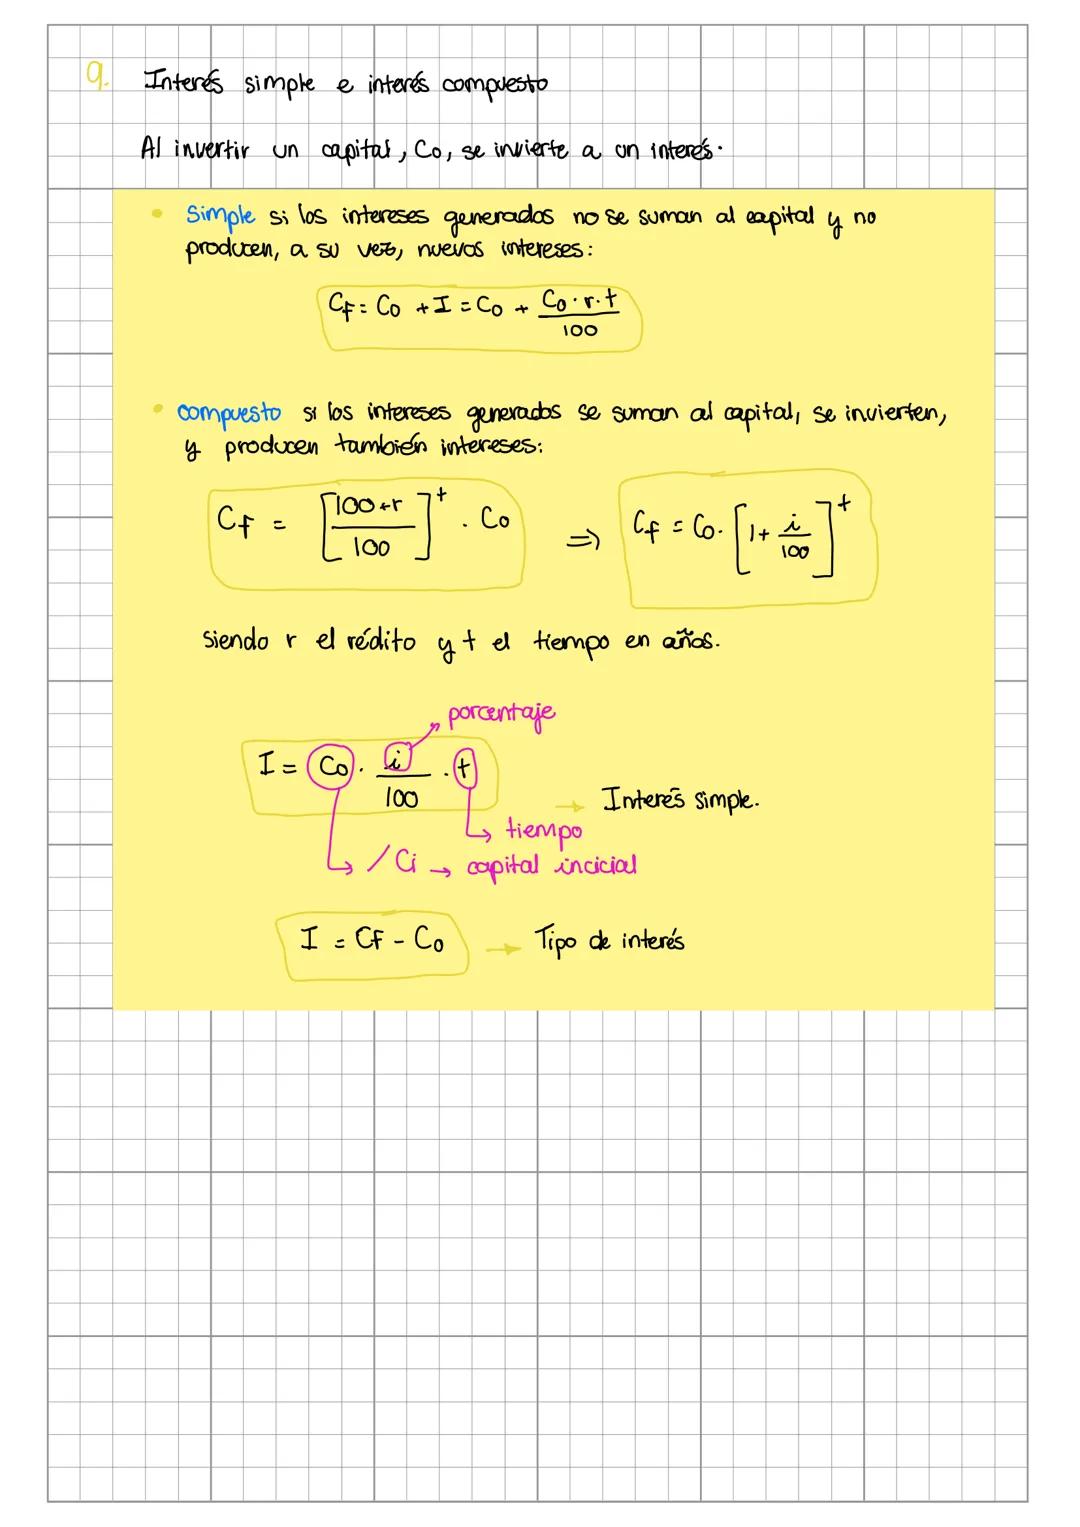 9. Interés simple e interés compuesto
Al invertir un capital, Co, se invierte a un interés.
• Simple si los intereses generados no se suman al capital y no
producen, a su vez, nuevos intereses:
CF = Co + I = Co + Co · r · t / 100
• compuesto si los intereses generados se suman al capital, se invierten,
y producen también intereses:
Cf = [100+r / 100]^t · Co ⇒ Cf = Co · [1 + i/100]^t
Siendo r el rédito y t el tiempo en años.
porcentaje
I = Co · i/100 · t
→ Interés simple.
tiempo
/ Ci → capital incicial
I = CF - Co → Tipo de interés